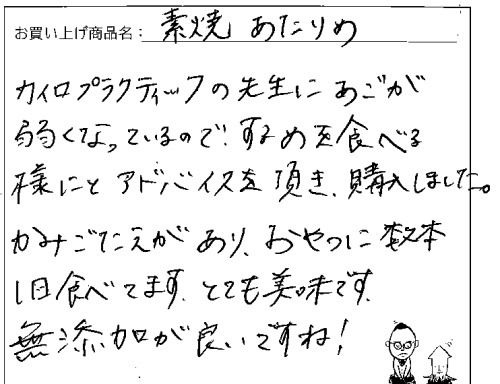 お買い上げ商品名: 素焼 あたりめ
カイロプラクティックの先生にあごが
弱くなっているので、するめを食べる
様にと アドバイスを頂き、購入しました。
かみごたえが あり、おやつに 数本
1日食べてます。とても美味です。
無添加が良いですね!